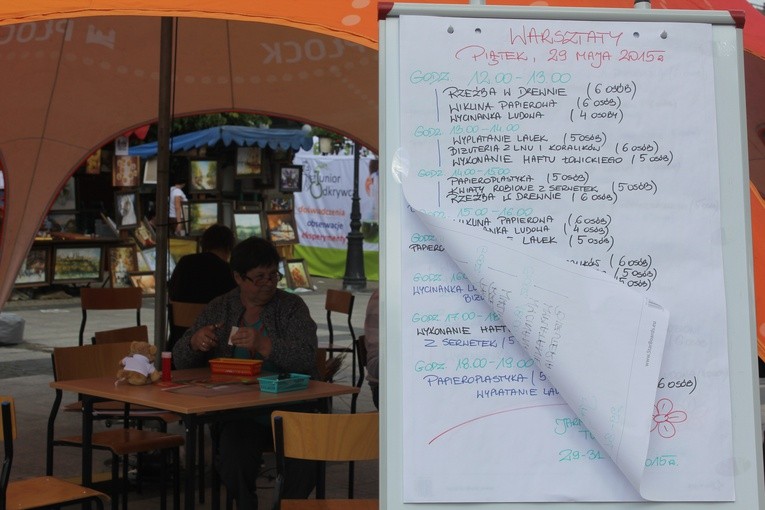 PŁOCK
PŁOCK
junior
odkrywca
doświadczenia
obserwacje
eksperymenty
WARSZTATY
PIĄTEK, 29 MAJA 2015R
GODZ. 12.00-13.00
RZEŹBA W DREWNIE (6 OSÓB)
WIKLINA PAPIEROWA (6 OSÓB)
WYCINANKA LUDOWA (4 OSOBY)
GODZ 13.00-14.00
WYPLATANIE LALEK (5 OSÓB)
BIŻUTERIA Z LNU I KORALIKÓW (6 OSÓB)
WYKONANIE HAFTU ŁOWICKIEGO (5 OSÓB)
GODZ 14.00-15.00
PAPIEROPLASTYKA (5 OSÓB)
KWIATY ROBIONE Z SERWETEK (5 OSÓB)
RZEŹBA W DREWNIE (6 OSÓB)
15.00-16.00
WIKLINA PAPIEROWA (6 OSÓB)
NKA LUDOWA (4 OSÓB)
LALEK (5 OSÓB)
GODZ
PAPIERO
(6 OSÓB)
(5 OSÓB)
(5 OSÓB)
GODZ 16
WYCINANKA LU
BIŻU
GODZ 17.00-18
WYKONANIE HAFT
Z SERWETEK (5
GODZ 18.00-19.00
PAPIEROPLASTYKA (5
(6 OSÓB)
WYPLATANIE LAL
29-31
2015R.